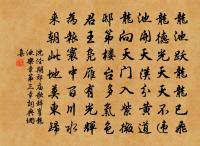 龍池躍龍龍已飛
龍德先天天不違
池開天漢分黃道
龍向天門入紫微
邸第樓臺多氣色
君王鳧雁有光輝
為報寰中百川水
來朝此地莫東歸
沈佺期郊廟歌辭享龍
池樂章第三章詞典網
集